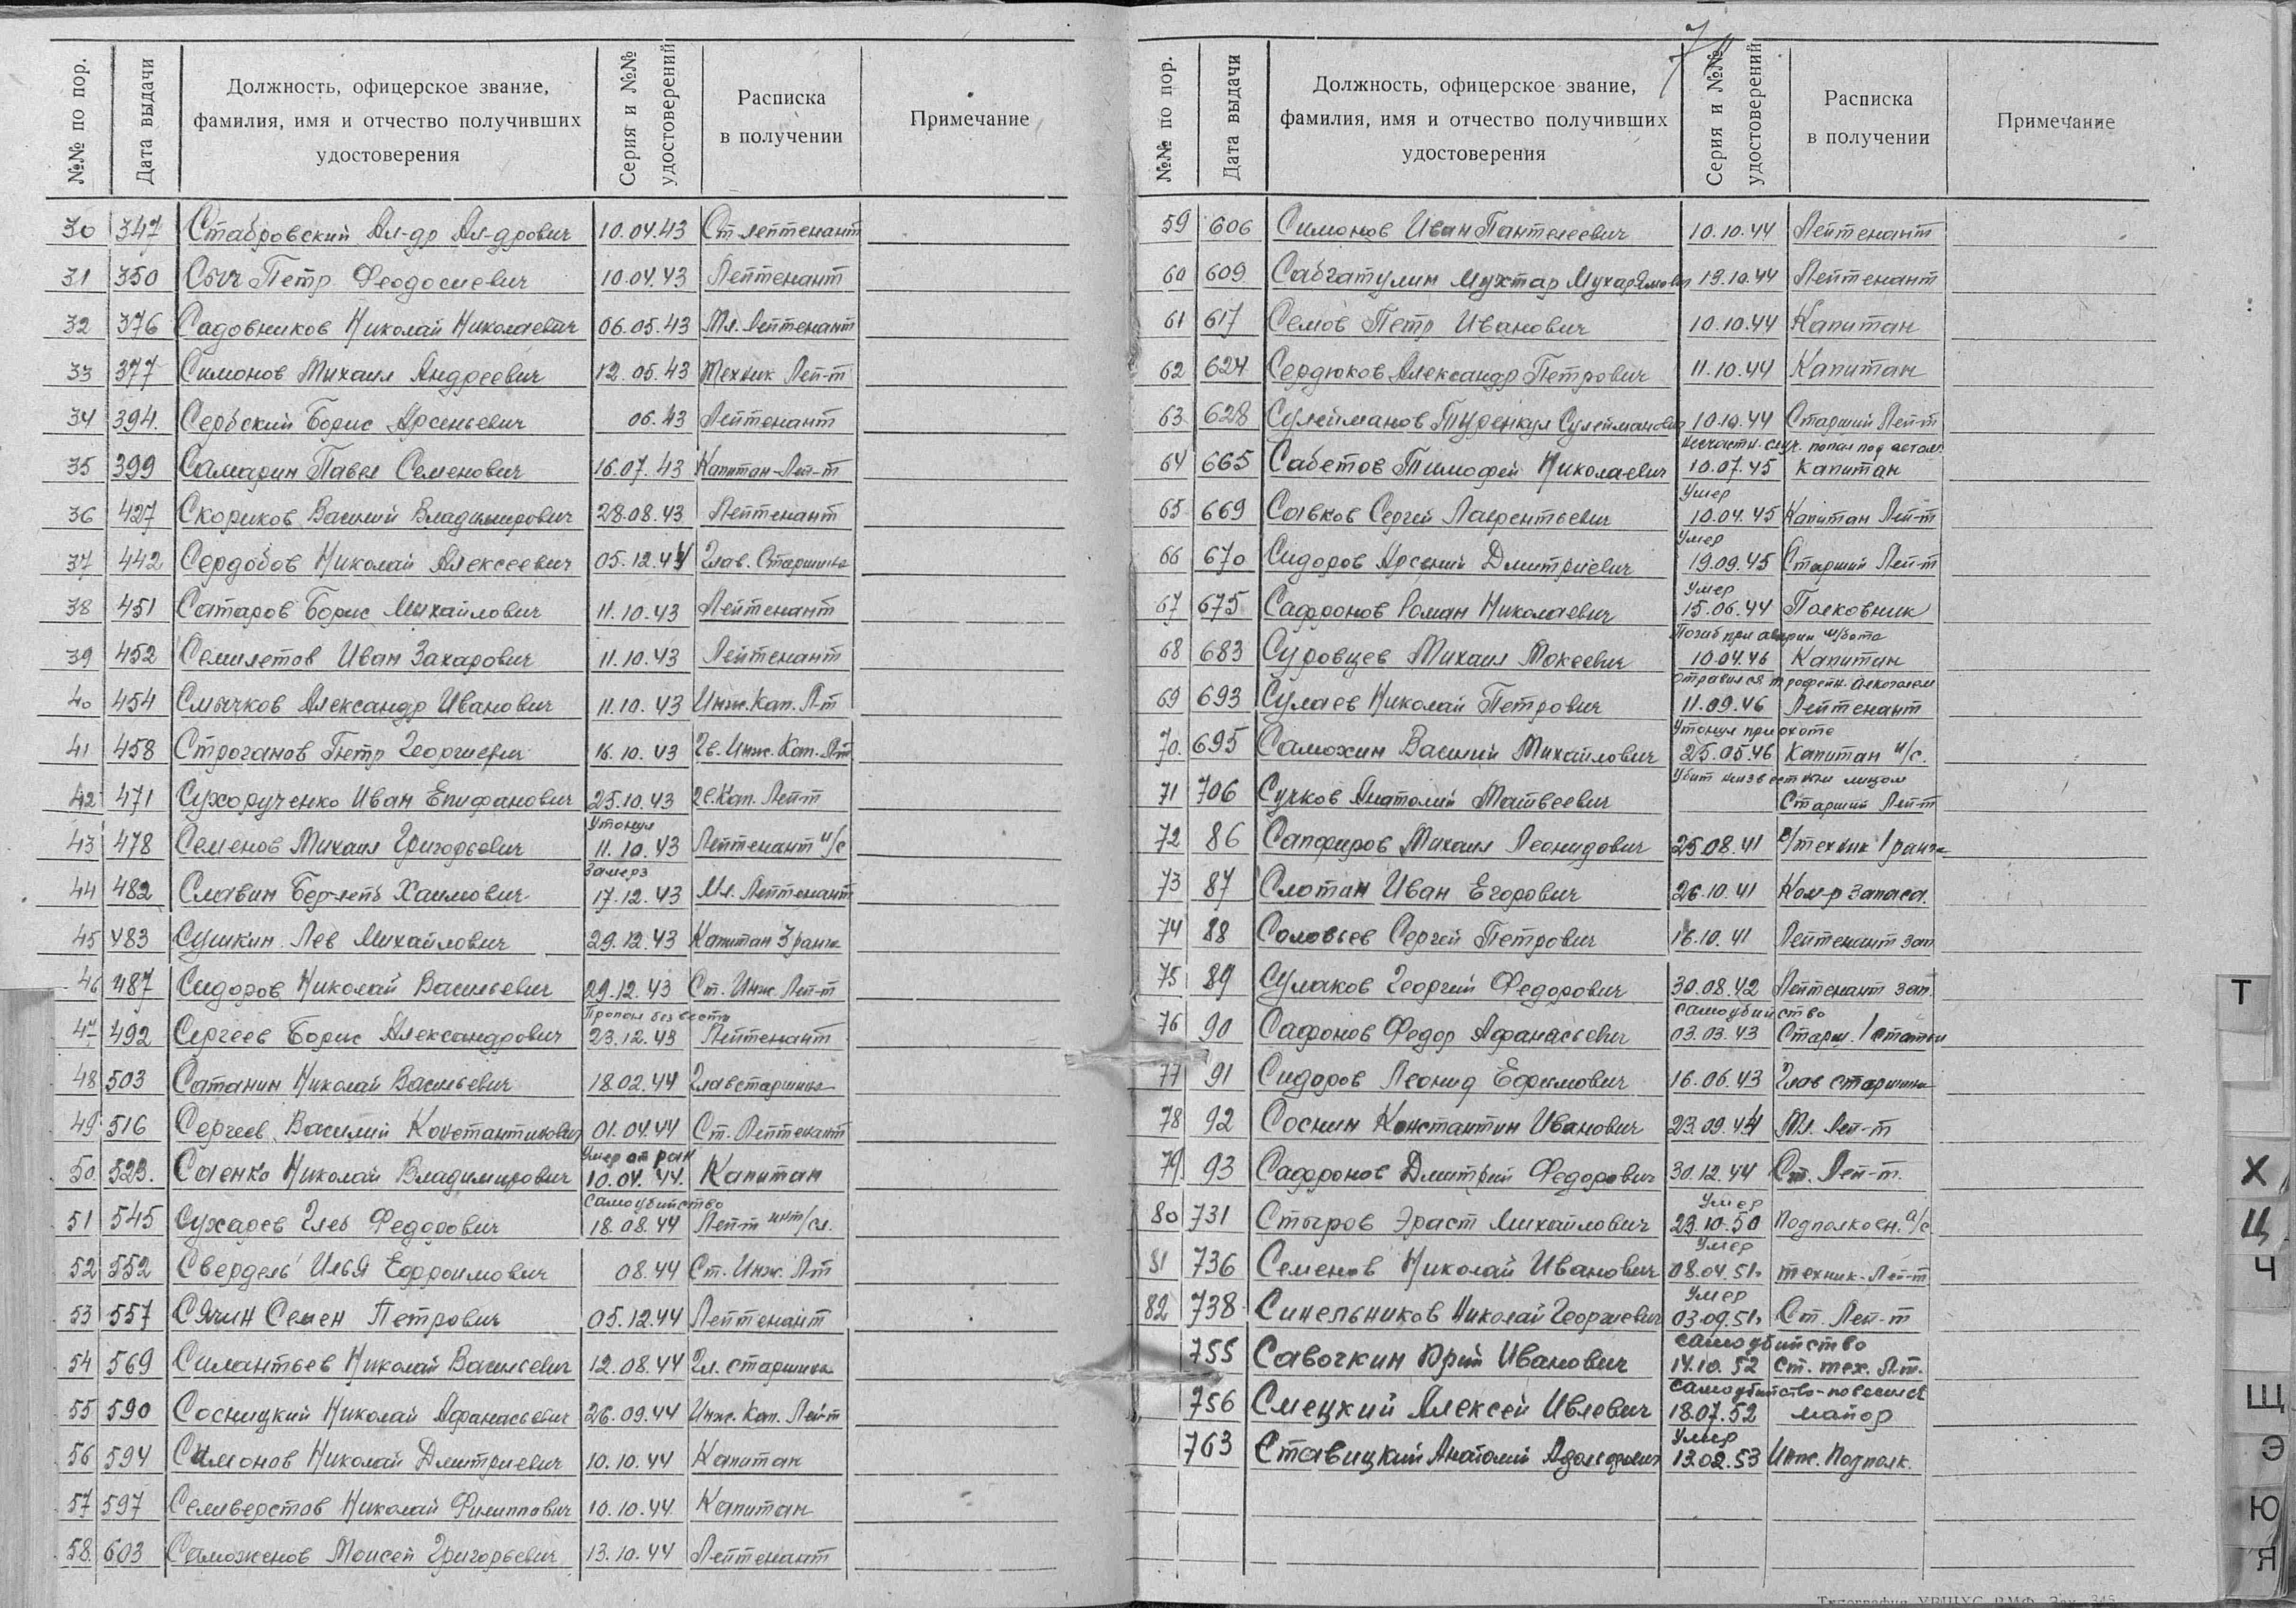 №№ по пор. Дата выдачи Должность, офицерское звание, фамилия, имя и отчество получивших удостоверения Серия и №№ удостоверений Расписка в получении Примечание
30 347 Стабровский Ал-др Ал-дрович 10.04.43 Ст. лейтенант
31 350 Сыч Петр Феодосиевич 10.04.43 Лейтенант
32 376 Садовников Николай Николаевич 06.05.43 Мл. Лейтенант
33 377 Симонов Михаил Андреевич 12.05.43 Техник Лей-т
34 394. Сербский Борис Арсеньевич 06.43 Лейтенант
35 399 Самарин Павел Семенович 16.07.43 Капитан-Лей-т
36 427 Скориков Василий Владимирович 28.08.43 Лейтенант
37 442 Сердобов Николай Алексеевич 05.12.44 Глав. Старшина
38 451 Сатаров Борис Михайлович 11.10.43 Лейтенант
39 452 Семилетов Иван Захарович 11.10.43 Лейтенант
40 454 Смычков Александр Иванович 11.10.43 Инж. Кап. Л-т
41 458 Строганов Петр Георгиевич 16.10.43 Гв. Инж. Кап. Л-т
42 471 Сухорученко Иван Епифанович 25.10.43 Гв. Кап. Лей-т
Утонул
43 478 Семенов Михаил Григорьевич 11.10.43 Лейтенант и/с
Замерз
44 482 Славин Бер-лейб Хаимович 17.12.43 Мл. Лейтенант
45 483 Сушкин Лев Михайлович 29.12.43 Капитан 3 ранга
46 487 Сидоров Николай Васильевич 29.12.43 Ст. Инж. Лей-т
Пропал без вести
47 492 Сергеев Борис Александрович 23.12.43 Лейтенант
48 503 Сатанин Николай Васильевич 18.02.44 Главстаршина
49 516 Сергеев Василий Константинович 01.04.44 Ст. Лейтенант
Умер от ран
50 523. Саенко Николай Владимирович 10.04.44. Капитан
Самоубийство
51 545 Сухарев Глеб Федорович 18.08.44 Лей-т инт/сл.
52 552 Свердель Илья Ефроимович 08.44 Ст. Инж. Л-т
53 557 Сячин Семен Петрович 05.12.44 Лейтенант
54 569 Силантьев Николай Васильевич 12.08.44 Гл. старшина
55 590 Сосницкий Николай Афанасьевич 26.09.44 Инж. Кап. Лей-т
56 594 Симонов Николай Дмитриевич 10.10.44 Капитан
57 597 Селиверстов Николай Филиппович 10.10.44 Капитан
58 603 Саможенов Моисей Григорьевич 13.10.44 Лейтенант
7
№№ по пор. Дата выдачи Должность, офицерское звание, фамилия, имя и отчество получивших удостоверения Серия и №№ удостоверений Расписка в получении Примечание
59 606 Симонов Иван Пантелеевич 10.10.44 Лейтенант
60 609 Сабгатулин Мухтар 13.10.44 Лейтенант
61 617 Семов Петр Иванович 10.10.44 Капитан
62 624 Сердюков Александр Петрович 11.10.44 Капитан
63 628 Сулейманов Туренкул Сулейманович 10.10.44 Старший Лей-т
Несчастн. случ. попал под автом.
64 665 Сабетов Тимофей Николаевич 10.07.45 Капитан
Умер
65 669 Савков Сергей Лаврентьевич 10.04.45 Капитан Лей-т
Умер
66 670 Сидоров Арсений Дмитриевич 19.09.45 Старший Лей-т
Умер
67 675 Сафронов Роман Николаевич 15.06.44 Полковник
Погиб при аварии м/бота
68 683 Суровцев Михаил Мокеевич 10.04.46 Капитан
отравился трофейн. алкоголем
69 693 Сулаев Николай Петрович 11.09.46 Лейтенант
Утонул при охоте
70. 695 Самохин Василий Михайлович 25.05.46 Капитан и/с.
Убит неизвестным лицом
71 706 Сучков Анатолий Матвеевич Старший Лей-т
72 86 Сапфиров Михаил Леонидович 25.08.41 в/техник 1 ранга
73 87 Слотан Иван Егорович 26.10.41 Ком-р запаса.
74 88 Соловьев Сергей Петрович 16.10.41 Лейтенант зап
75 89 Сулаков Георгий Федорович 30.08.42 Лейтенант зап.
самоубийство
76 90 Сафонов Федор Афанасьевич 03.03.43 Старш. 1 статьи
77 91 Сидоров Леонид Ефимович 16.06.43 Глав старшина
78 92 Соснин Константин Иванович 23.09.44 Мл. Лей-т
79 93 Сафронов Дмитрий Федорович 30.12.44 Ст. Лей-т.
Умер
80 731 Стыров Эраст Михайлович 23.10.50 Подполковн. а/с
Умер
81 736 Семенов Николай Иванович 08.04.51г техник-Лей-т
Умер
82 738 Синельников Николай Георгиевич 03.09.51г Ст. Лей-т
самоубийство
755 Савочкин Юрий Иванович 14.10.52 Ст. тех. Л-т.
Самоубийство-повесился
756 Смецкий Алексей Ивлевич 18.07.52 майор
Умер
763 Ставицкий Анатолий Адольфович 13.02.53 Инж. Подполк.
Т
Х
Ц
Ч
Щ
Э
Ю
Я